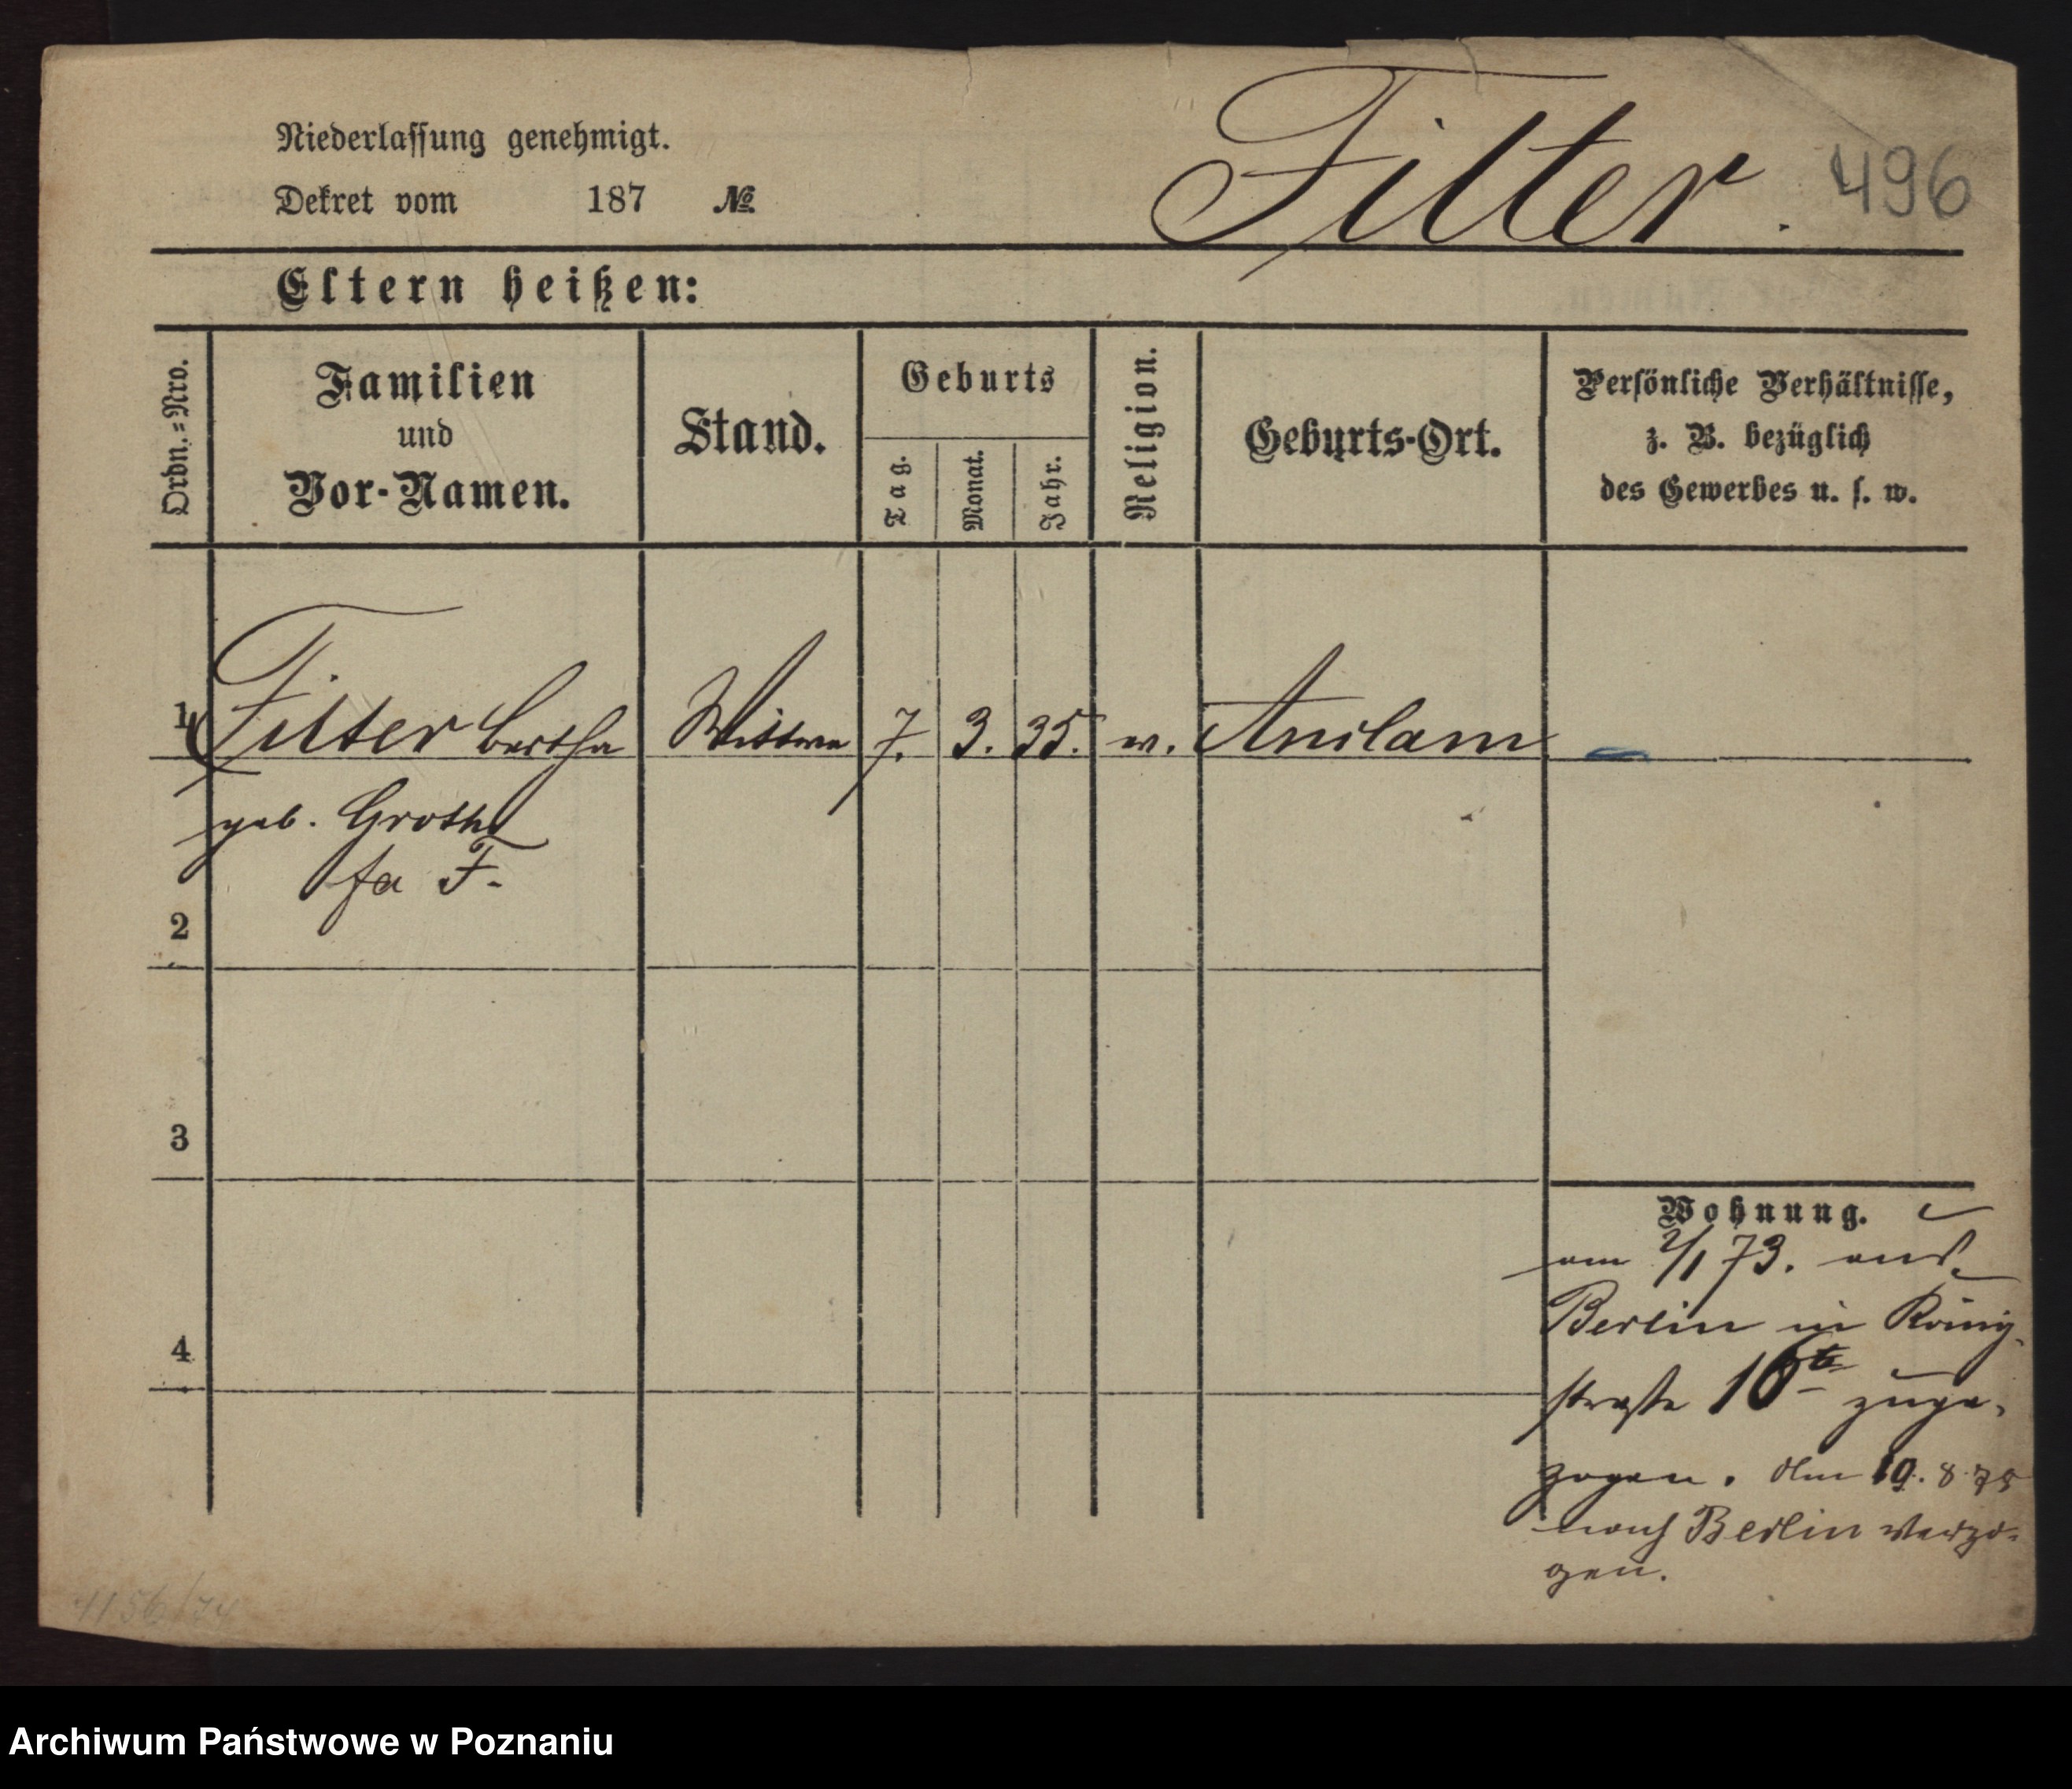 Niederlassung genehmigt.
Dekret vom 187 №
Filter. 496
Eltern heißen:
Ordn.=Nro.
Familien
und
Vor-Namen.
Stand.
Geburts
Tag.
Monat.
Jahr.
Religion.
Geburts-Ort.
Persönliche Verhältnisse,
z. B. bezüglich
des Gewerbes u. s. w.
1 Filter Bertha Wittwe 7. 3. 35. Anclam
geb. Grothe
F.
2
3
4
Wohnung.
am 2/1 73. aus
Berlin in König
straße 16 zuge-
zogen. Am 19. 8 75
nach Berlin verzo-
gen.
4156/74
Archiwum Państwowe w Poznaniu